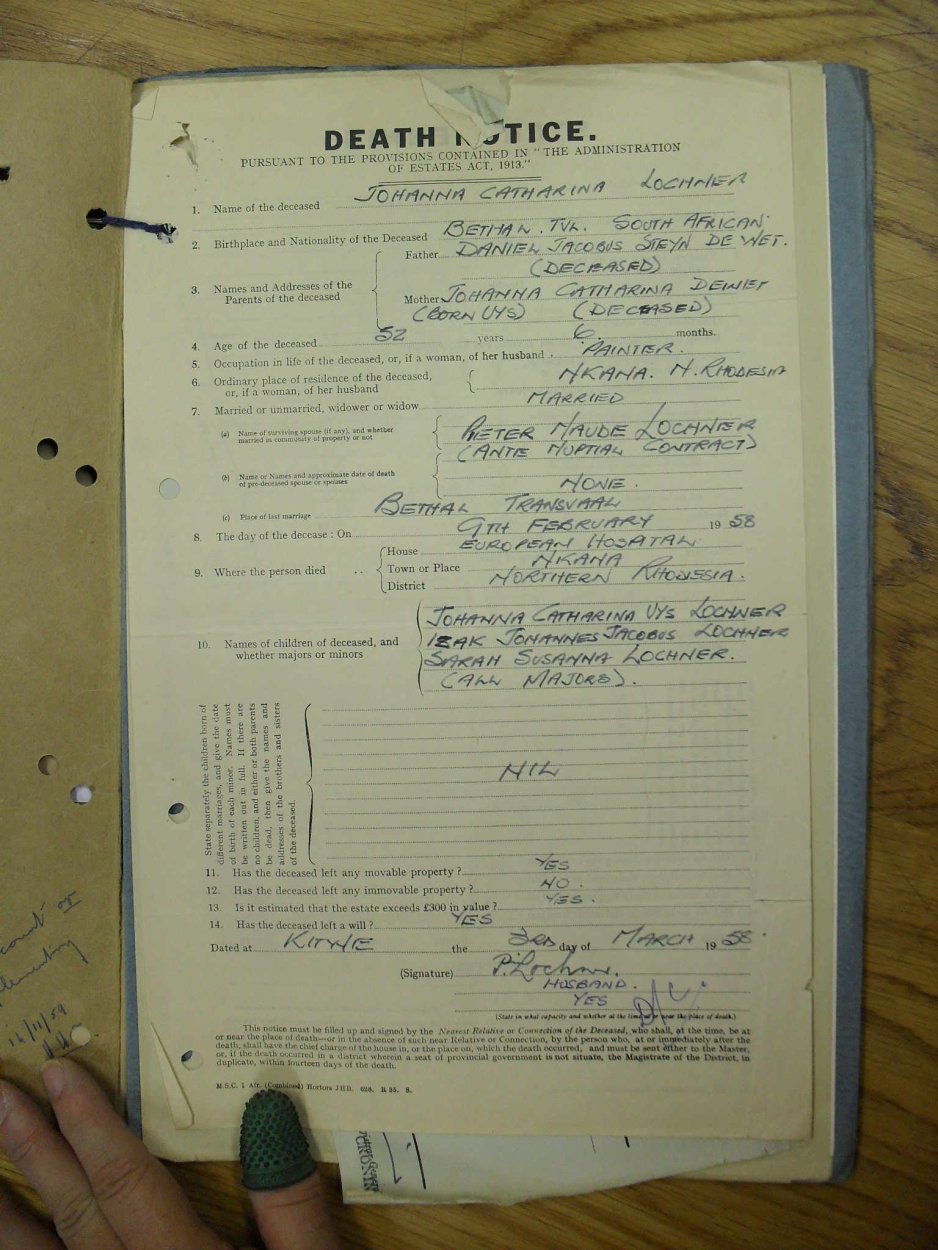 DEATH NOTICE.
PURSUANT TO THE PROVISIONS CONTAINED IN "THE ADMINISTRATION
OF ESTATES ACT, 1913."
1. Name of the deceased JOHANNA CATHARINA LOCHNER
2. Birthplace and Nationality of the Deceased BETHAL. TVL. SOUTH AFRICAN.
3. Names and Addresses of the Parents of the deceased
Father DANIEL JACOBUS STEYN DE WET.
(DECEASED)
Mother JOHANNA CATHARINA DEWET
(BORN UYS) (DECEASED)
4. Age of the deceased 52 years 6 months.
5. Occupation in life of the deceased, or, if a woman, of her husband. PAINTER.
6. Ordinary place of residence of the deceased, NKANA. N. RHODESIA
or, if a woman, of her husband
7. Married or unmarried, widower or widow MARRIED
(a) Name of surviving spouse (if any), and whether PIETER MAUDE LOCHNER
married in community of property or not (ANTE NUPTIAL CONTRACT)
(b) Name or Names and approximate date of death
of pre-deceased spouse or spouses NONE.
(c) Place of last marriage BETHAL TRANSVAAL
8. The day of the decease : On 9TH FEBRUARY 1958
9. Where the person died ..
House EUROPEAN HOSPITAL.
Town or Place NKANA
District NORTHERN RHODESIA.
10. Names of children of deceased, and
whether majors or minors
JOHANNA CATHARINA UYS LOCHNER
IZAK JOHANNES JACOBUS LOCHNER
SARAH SUSANNA LOCHNER.
(ALL MAJORS).
State separately the children born of
different marriages, and give the date
of birth of each minor. Names must
be written out in full. If there are
no children, and either or both parents
be dead, then give the names and
addresses of the brothers and sisters
of the deceased.
NIL
11. Has the deceased left any movable property ? YES
12. Has the deceased left any immovable property ? NO.
13. Is it estimated that the estate exceeds £300 in value ? YES.
14. Has the deceased left a will ? YES
Dated at KITWE the 3RD day of MARCH 1958.
(Signature) P. Lochner.
HUSBAND.
YES
(State in what capacity and whether at the time at or near the place of death.)
This notice must be filled up and signed by the Nearest Relative or Connection of the Deceased, who shall, at the time, be at
or near the place of death—or in the absence of such near Relative or Connection, by the person who, at or immediately after the
death, shall have the chief charge of the house in, or the place on, which the death occurred, and must be sent either to the Master,
or, if the death occurred in a district wherein a seat of provincial government is not situate, the Magistrate of the District, in
duplicate, within fourteen days of the death.
M.S.C. 1 Afr. (Combined) Hortors JHB. 628. R 35. S.
CRONIN